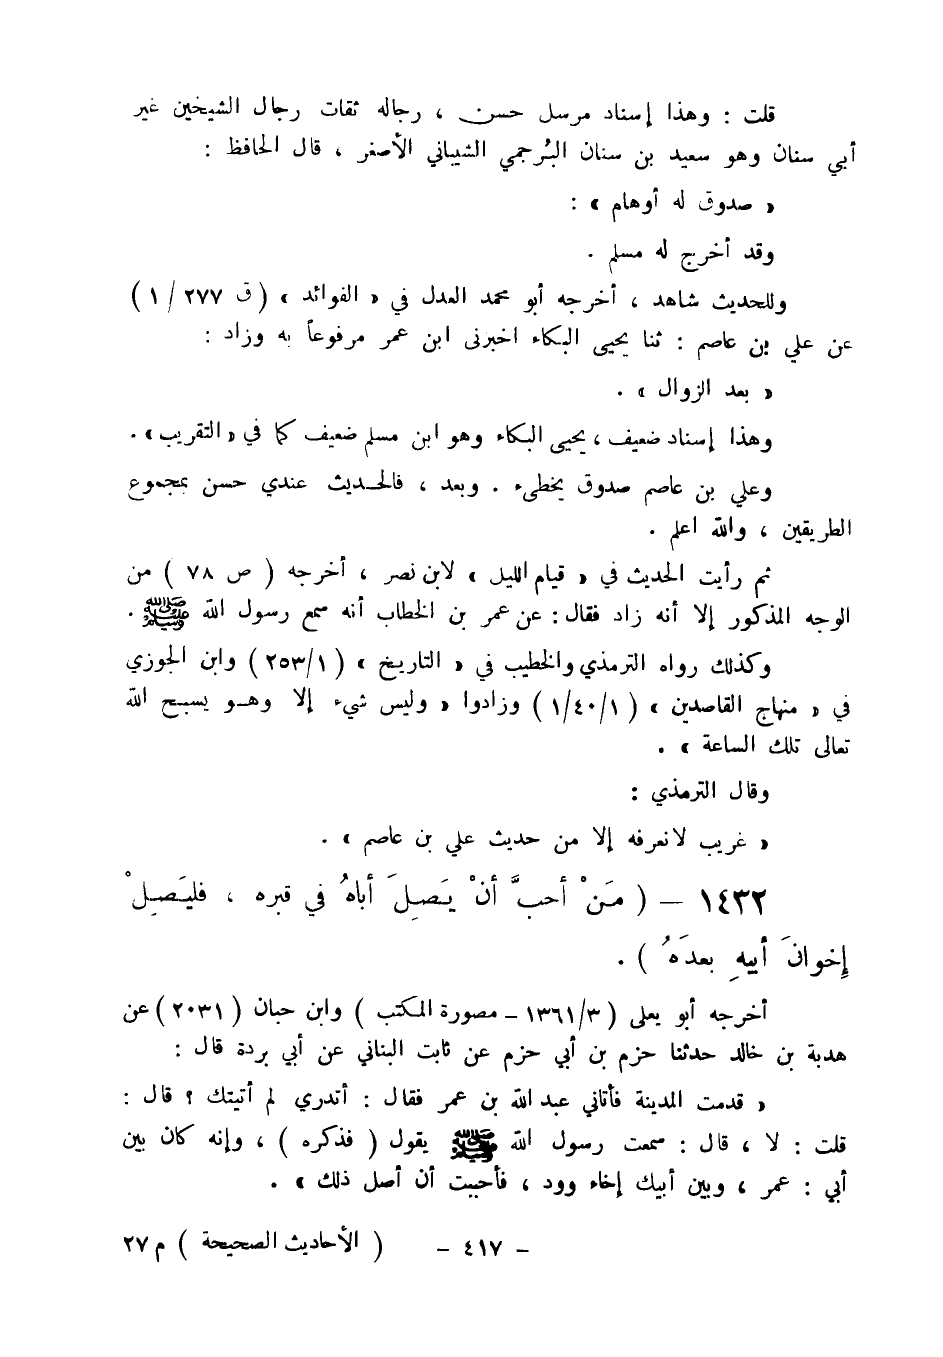 قلت : وهذا إسناد مرسل حسن ، رجاله ثقات رجال الشيخين غير
أبي سنان وهو سعيد بن سنان البُرجمي الشيباني الأصغر ، قال الحافظ :
« صدوق له أوهام » :
وقد أخرج له مسلم .
وللحديث شاهد ، أخرجه أبو محمد العدل في « الفوائد » ( ق ٢٧٧ / ١ )
عن علي بن عاصم : ثنا يحيى البكاء اخبرنى ابن عمر مرفوعاً به وزاد :
« بعد الزوال » .
وهذا إسناد ضعيف ، يحيى البكاء وهو ابن مسلم ضعيف كما في « التقريب » .
وعلي بن عاصم صدوق يخطىء . وبعد ، فالحديث عندي حسن بمجموع
الطريقين ، والله اعلم .
ثم رأيت الحديث في « قيام الليل » لابن نصر ، أخرجه ( ص ٧٨ ) من
الوجه المذكور إلا أنه زاد فقال : عن عمر بن الخطاب أنه سمع رسول الله ﷺ .
وكذلك رواه الترمذي والخطيب في « التاريخ » ( ٢٥٣/١ ) وابن الجوزي
في « منهاج القاصدين » ( ١/٤٠/١ ) وزادوا « وليس شيء إلا وهو يسبح الله
تعالى تلك الساعة » .
وقال الترمذي :
« غريب لانعرفه إلا من حديث علي بن عاصم » .
١٤٣٢ – ( مَنْ أحبَّ أنْ يَصِلَ أباهُ في قبره ، فليَصِلْ
إخوانَ أبيهِ بعدَهُ ) .
أخرجه أبو يعلى ( ١٣٦١/٣ – مصورة المكتب ) وابن حبان ( ٢٠٣١ ) عن
هدبة بن خالد حدثنا حزم بن أبي حزم عن ثابت البناني عن أبي بردة قال :
« قدمت المدينة فأتاني عبد الله بن عمر فقال : أتدري لم أتيتك ؟ قال :
قلت : لا ، قال : سمعت رسول الله ﷺ يقول ( فذكره ) ، وإنه كان بين
أبي : عمر ، وبين أبيك إخاء وود ، فأحببت أن أصل ذلك » .
– ٤١٧ – ( الأحاديث الصحيحة ) م ٢٧